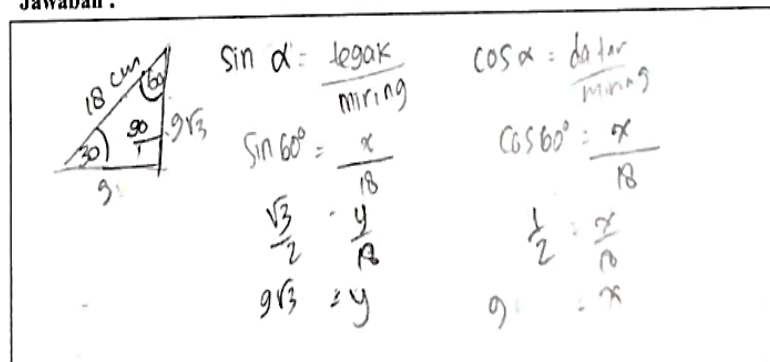 Jawaban :
18 cm
60
30
90
9√3
9
sin α = tegak / miring
sin 60° = x / 18
√3 / 2 = y / 18
9√3 = y
cos α = datar / miring
cos 60° = x / 18
1 / 2 = x / 18
9 = x